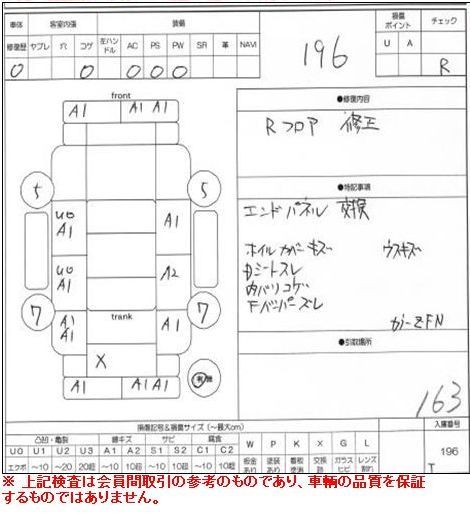 車体 客室内張 装備 損傷ポイント チェック
修復歴 ヤブレ 穴 コゲ 左ハンドル AC PS PW SR 革 NAVI U A
0 0 0 0 0 R
196
front
A1 A1 A1
●修復内容
Rフロア 修正
5 5
U0
A1 A1
●特記事項
エンドパネル 交換
ホイルカバーキズ ウスキズ
Dシートスレ
内バリコゲ
Fバンパーズレ
U0
A1 A2
7 7
trank
A1
A1 A1
X
●引取場所
有 無
A1 A1 A1
163
損傷記号&損傷サイズ(〜最大cm) 入庫番号
凸凹・亀裂 線キズ サビ 腐食 W P K X G L
U0 U1 U2 U3 A1 A2 S1 S2 C1 C2
エクボ 〜10 〜20 20超 〜10 10超 〜10 10超 〜10 10超 板金あり 補修あり 交換済 ガラスヒビ レンズ割れ
196
T
※ 上記検査は会員間取引の参考のものであり、車輌の品質を保証
するものではありません。